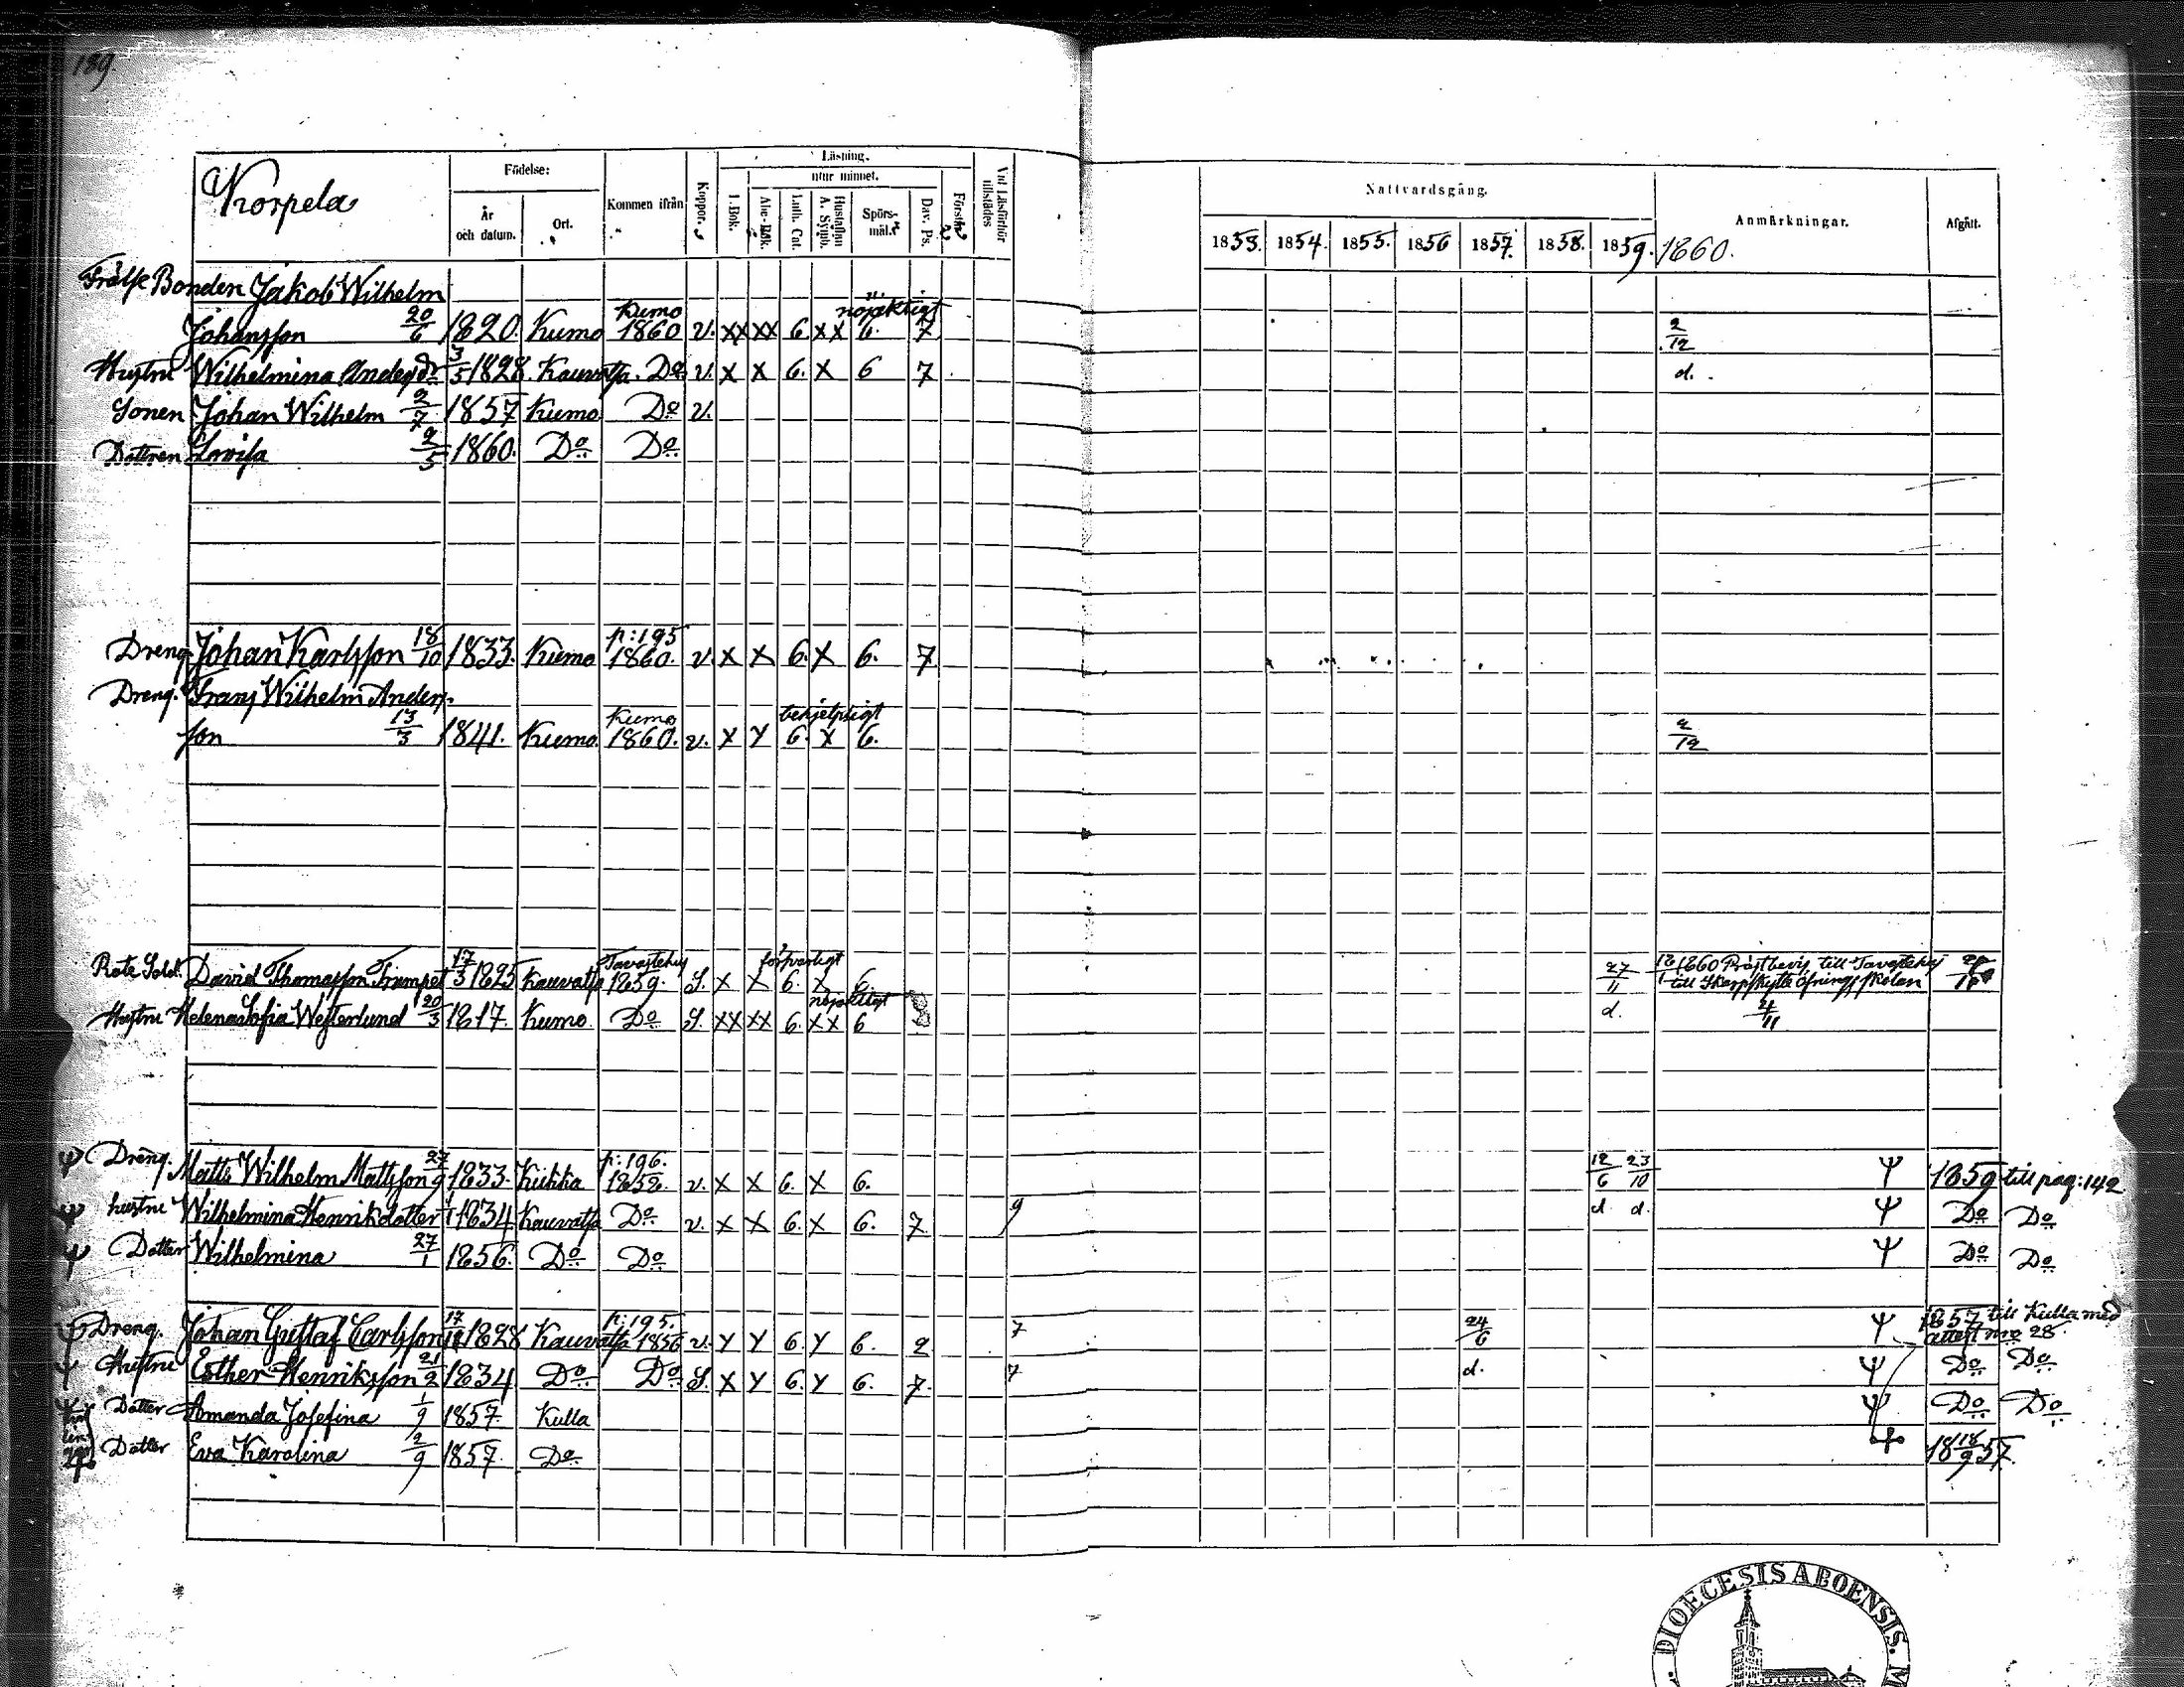 189.
Korpela
Födelse:
År och datum.
Ort.
Kommen ifrån
Koppor.
Läsning.
utur minnet.
I. Bok.
Abc-Bok.
Luth. Cat.
Hustaflan A. Symb.
Spörsmål.
Dav. Ps.
Förstår
Vid Läsförhör tillstädes
Nattvardsgång.
1853. 1854. 1855. 1856 1857. 1858. 1859. 1860.
Anmärkningar.
Afgått.
Frälse Bonden Jakob Wilhelm
Kumo nöjaktigt
Johansson 20/6 1820. Kumo 1860 v. XX XX 6. XX 6. 7 2/12
Hustru Wilhelmina Andersdr 3/5 1828. Kauvatsa. Do v. X X 6. X 6 7 d.
Sonen Johan Wilhelm 2/7 1857 Kumo Do v.
Dottren Lovisa 2/5 1860. Do Do
p: 195
Dreng. Johan Karlsson 18/10 1833. Kumo 1860. v. X X 6. X 6. 7
Dreng. Frans Wilhelm Anders-
Kumo behjelpligt
son 13/3 1841. Kumo. 1860. v. X Y 6. X 6. 2/12
Tavastehus försvarligt
Rote Sold. David Thomasson Trumpet 17/3 1825 Kauvatsa 1859. S. X X 6. X 6. 27/11 12/1 1860 Prästbevis till Tavastehus
till Skarpskytte öfningsskolan
nöjaktigt
Hustru Helena Sofia Westerlund 20/3 1817. Kumo. Do S. XX XX 6. XX 6 d. 4/11
p: 196.
Dreng. Matts Wilhelm Mattsson 27/9 1833. Kiikka 1858. v. X X 6. X 6. 12/6 23/10 1859 till pag: 142
hustru Wilhelmina Henriksdotter 1834 Kauvatsa Do v. X X 6. X 6. 7. 9 d. d. Do Do
Dotter Wilhelmina 27/1 1856. Do Do Do Do
p: 195.
Dreng. Johan Gustaf Carlsson 17/12 1828 Kauvatsa 1856 v. Y Y 6. Y 6. 2 7 24/6 1857 till Kulla med
attest nro 28.
Hustru Esther Henriksson 21/2 1834 Do Do S. X Y 6. Y 6. 7. 7 d. Do Do
Dotter Amanda Josefina 1/9 1857. Kulla Do Do
Dotter Eva Karolina 2/9 1857. Do 18 18/9 57.
DIOECESIS ABOENSIS. M